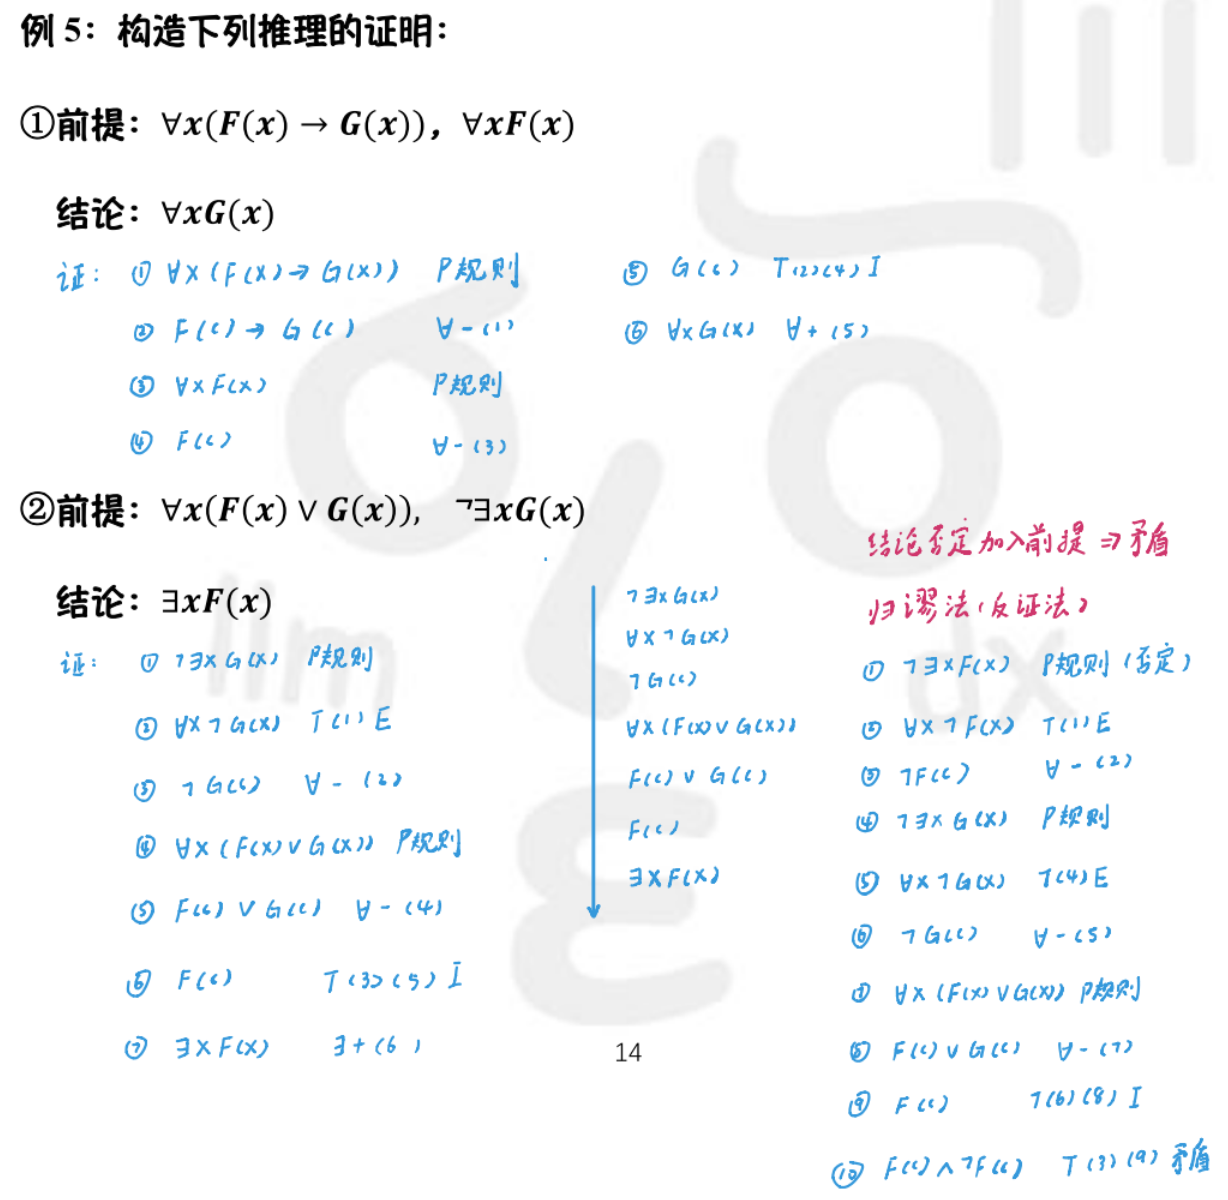 例 5：构造下列推理的证明：
①前提：∀x(F(x) → G(x))，∀xF(x)
结论：∀xG(x)
证： ① ∀x(F(x)→G(x)) P规则
② F(c)→G(c) ∀-(1)
③ ∀xF(x) P规则
④ F(c) ∀-(3)
⑤ G(c) T(2)(4)I
⑥ ∀xG(x) ∀+(5)
②前提：∀x(F(x) ∨ G(x)), ¬∃xG(x)
结论：∃xF(x)
证： ① ¬∃xG(x) P规则
② ∀x¬G(x) T(1)E
③ ¬G(c) ∀-(2)
④ ∀x(F(x)∨G(x)) P规则
⑤ F(c)∨G(c) ∀-(4)
⑥ F(c) T(3)(5)I
⑦ ∃xF(x) ∃+(6)
¬∃xG(x)
∀x¬G(x)
¬G(c)
∀x(F(x)∨G(x))
F(c)∨G(c)
F(c)
∃xF(x)
结论否定加入前提⇒矛盾
归谬法(反证法)
① ¬∃xF(x) P规则(否定)
② ∀x¬F(x) T(1)E
③ ¬F(c) ∀-(2)
④ ¬∃xG(x) P规则
⑤ ∀x¬G(x) T(4)E
⑥ ¬G(c) ∀-(5)
⑦ ∀x(F(x)∨G(x)) P规则
⑧ F(c)∨G(c) ∀-(7)
⑨ F(c) T(6)(8)I
⑩ F(c)∧¬F(c) T(3)(9)矛盾
14
lim
dx